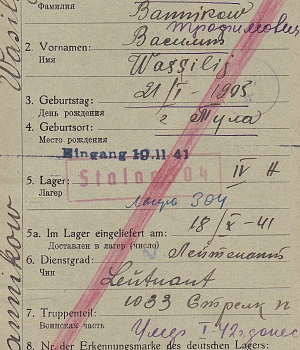 Фамилия
Bannikow
Трофимович
2. Vornamen: Василий
Имя
Wassilij
3. Geburtstag: 21/I - 1905
День рождения
4. Geburtsort: г Тула
Место рождения
Eingang 19.11 41
Stalag 304
5. Lager: IV H
Лагерь
Лагерь 304
5a. Im Lager eingeliefert am: 18/X-41
Доставлен в лагерь (число)
6. Dienstgrad: Лейтенант
Чин
Leutnant
1033 Стрелк п
7. Truppenteil:
Воинская часть
Умер I-42 донес
8. Nr. der Erkennungsmarke des deutschen Lagers:
Wasilij
annikow